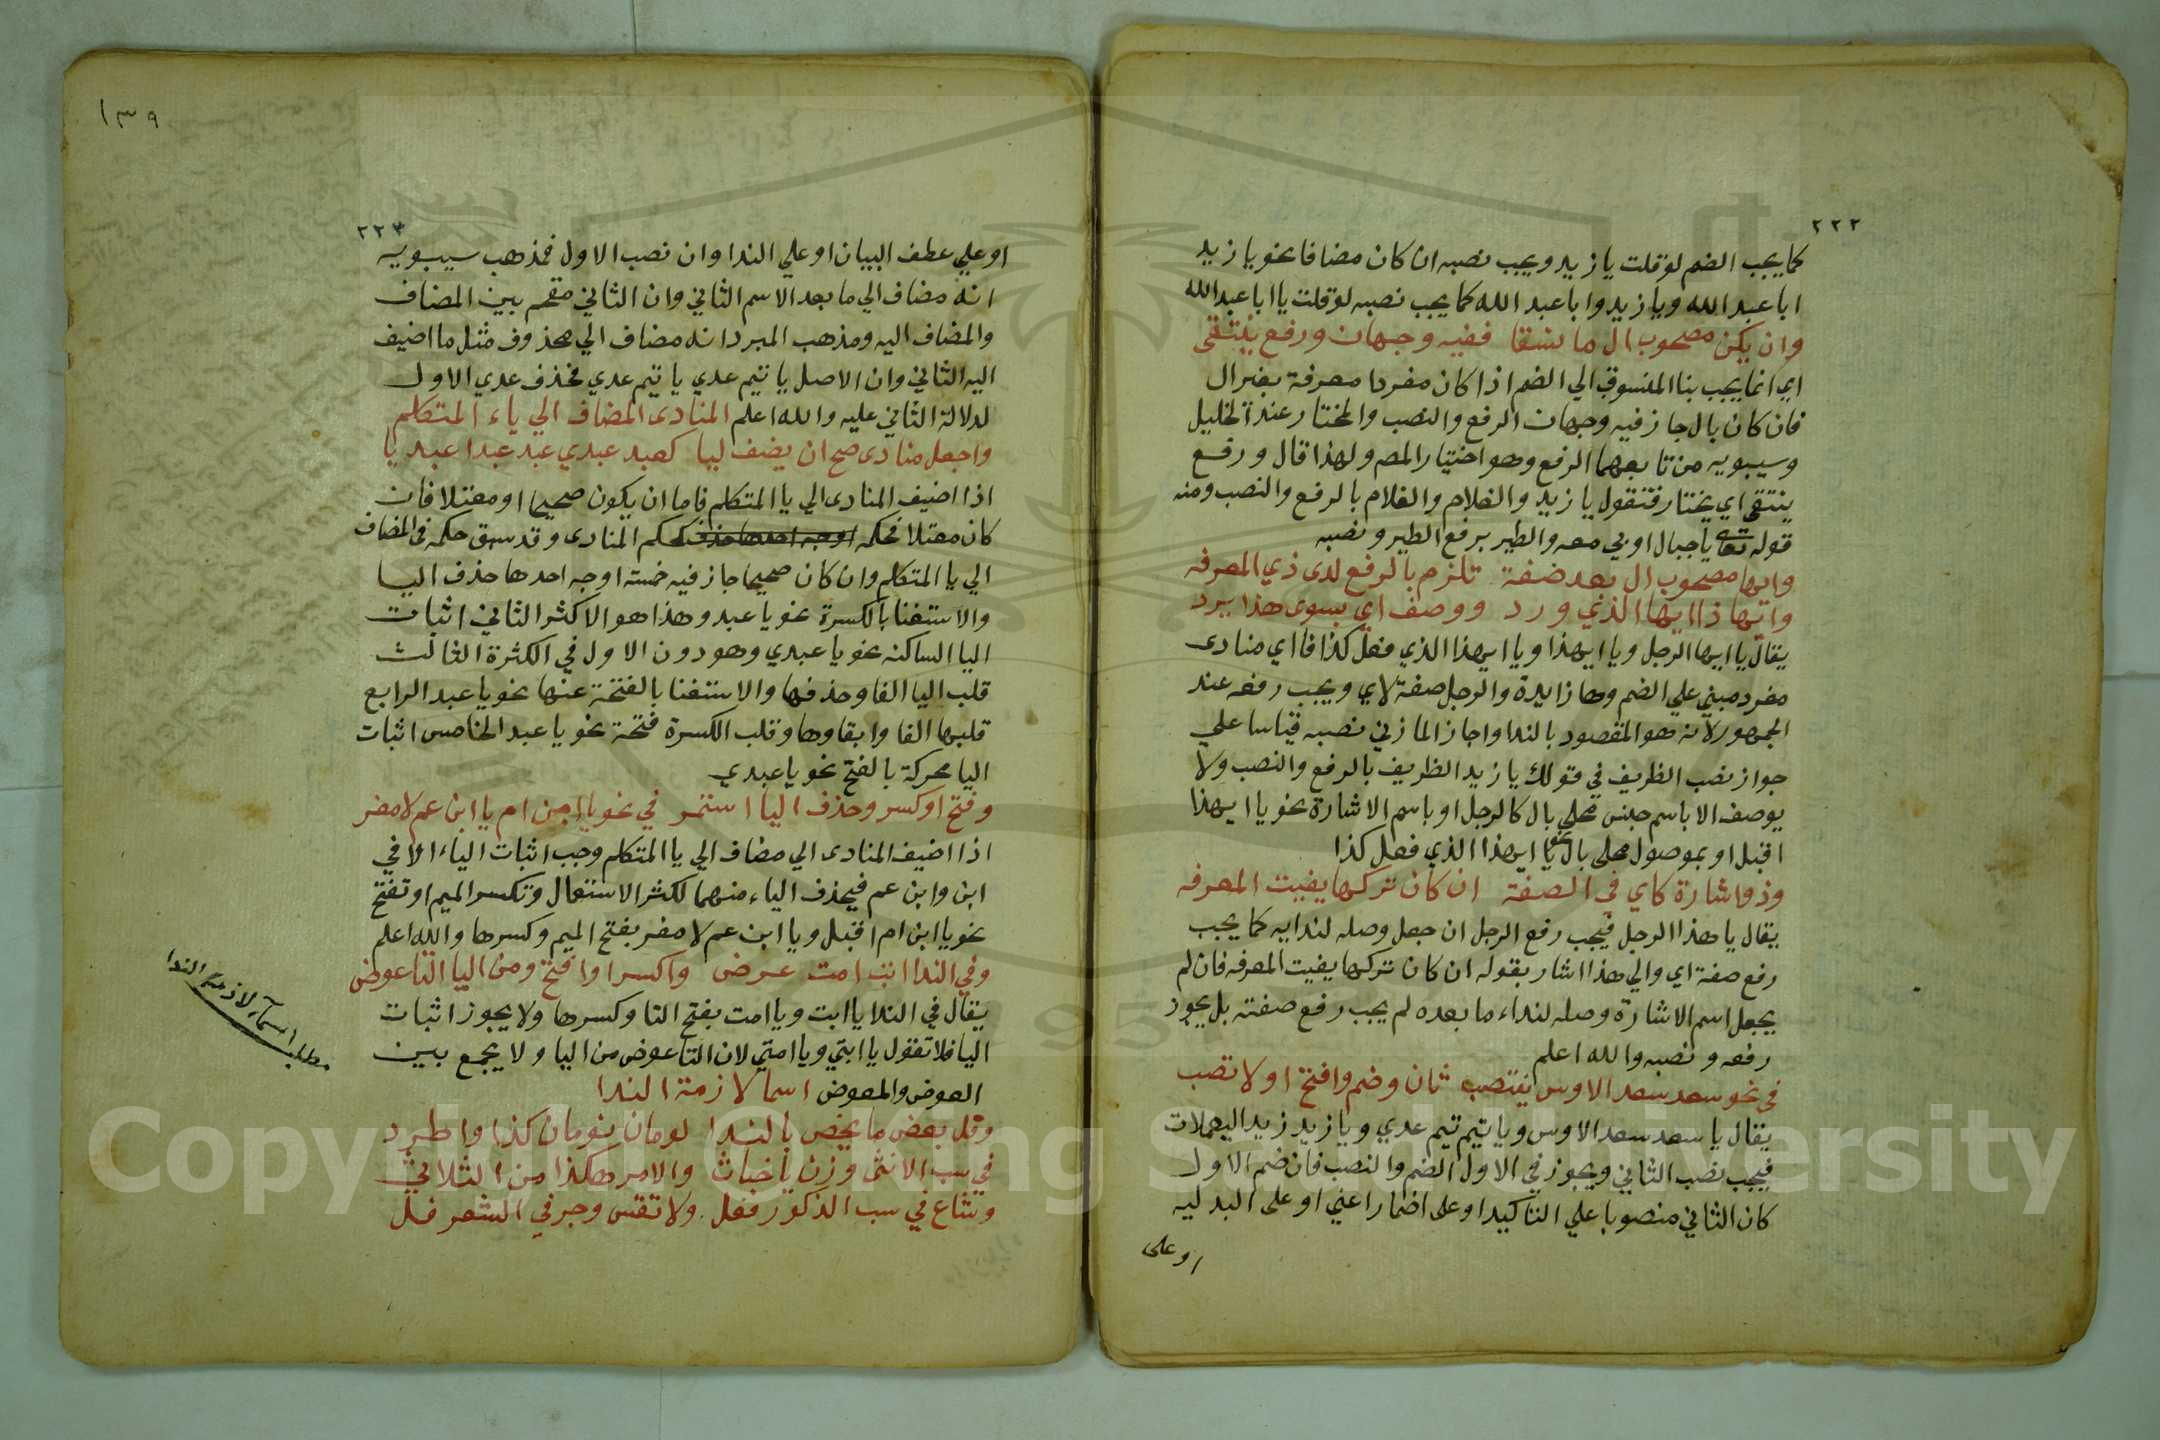 ٢٢٢
كما يجب الضم لو قلت يا زيد ويجب نصبه ان كان مضافا نحو يا زيد
ابا عبد الله ويا زيد وابا عبد الله كما يجب نصبه لو قلت يا ابا عبد الله
وان يكن مصحوب ال ما نسقا ففيه وجهان ورفع ينتقى
اي انما يجب بنا المنسوق الي الضم اذا كان مفردا معرفة بغير ال
فان كان بال جاز فيه وجهان الرفع والنصب والمختار عند الخليل
وسيبويه من تابعهما الرفع وهو اختيار المص ولهذا قال ورفع
ينتقى اي يختار فتقول يا زيد والغلام والغلام بالرفع والنصب ومنه
قوله تعالى يا جبال اوبي معه والطير برفع الطير ونصبه
وايها مصحوب ال بعد صفة تلزم بالرفع لدى ذي المعرفه
وايها ذا ايها الذي ورد ووصف اي بسوى هذا يرد
يقال يا ايها الرجل ويا ايهذا ويا ايهذا الذي فعل كذا فاي منادى
مفرد مبني علي الضم وها زايدة والرجل صفة لاي ويجب رفعه عند
الجمهور لانه هو المقصود بالندا واجاز المازني نصبه قياسا علي
جواز نصب الظريف في قولك يا زيد الظريف بالرفع والنصب ولا
يوصف الا باسم جنس محلي بال كالرجل او باسم الاشارة نحو يا ايهذا
اقبل او بموصول محلى بال نحو يا ايهذا الذي فعل كذا
وذو اشارة كاي في الصفة ان كان تركها يفيت المعرفه
يقال يا هذا الرجل فيجب رفع الرجل ان جعل وصله لندايه كما يجب
رفع صفة اي والي هذا اشار بقوله ان كان تركها يفيت المعرفه فان لم
يجعل اسم الاشارة وصله لنداء ما بعده لم يجب رفع صفته بل يجوز
رفعه ونصبه والله اعلم
في نحو سعد سعد الاوس ينتصب ثان وضم وافتح اولا تصب
يقال يا سعد سعد الاوس ويا تيم تيم عدي ويا زيد زيد اليعملات
فيجب نصب الثاني ويجوز في الاول الضم والنصب فان ضم الاول
كان الثاني منصوبا علي التاكيد او على اضمار اعني او على البدليه
او على
١٣٩
٢٢٣
او علي عطف البيان او علي الندا وان نصب الاول فمذهب سيبويه
انه مضاف الي ما بعد الاسم الثاني وان الثاني مقحم بين المضاف
والمضاف اليه ومذهب المبرد انه مضاف الي محذوف مثل ما اضيف
اليه الثاني وان الاصل يا تيم عدي يا تيم عدي فحذف عدي الاول
لدلالة الثاني عليه والله اعلم المنادى المضاف الي ياء المتكلم
واجعل منادى صح ان يضف ليا كعبد عبدي عبد عبدا عبديا
اذا اضيف المنادى الي يا المتكلم فاما ان يكون صحيحا او معتلا فان
كان معتلا فحكمه اوجه احدها حذف كحكم المنادى وقد سبق حكمه في المضاف
الي يا المتكلم وان كان صحيحا جاز فيه خمسة اوجه احدها حذف اليا
والاستغنا بالكسرة نحو يا عبد وهذا هو الاكثر الثاني اثبات
اليا الساكنه نحو يا عبدي وهو دون الاول في الكثرة الثالث
قلب اليا الفا وحذفها والاستغنا بالفتحة عنها نحو يا عبد الرابع
قلبها الفا وابقاوها وقلب الكسرة فتحة نحو يا عبد الخامس اثبات
اليا محركة بالفتح نحو يا عبدي
وفتح او كسر وحذف اليا استمر في نحو يا ابن ام يا ابن عم لا مفر
اذا اضيف المنادى الي مضاف الي يا المتكلم وجب اثبات الياء الا في
ابن وابن عم فيحذف الياء منهما لكثر الاستعمال وتكسر الميم او تفتح
نحو يا ابن ام اقبل ويا ابن عم لا مفر بفتح الميم وكسرها والله اعلم
وفي الندا ابت امت عرض واكسر او افتح ومن اليا التا عوض
يقال في الندا يا ابت ويا امت بفتح التا وكسرها ولا يجوز اثبات
اليا فلا تقول يا ابتي ويا امتي لان التا عوض من اليا ولا يجمع بين
العوض والمعوض اسما لازمة الندا
وفل بعض ما يخص بالندا لومان نومان كذا واطرد
في سب الانثى وزن يا خباث والامر هكذا من الثلاثي
وشاع في سب الذكور فعل ولا تقس وجر في الشعر فل
مطلب اسماء لازمة الندا